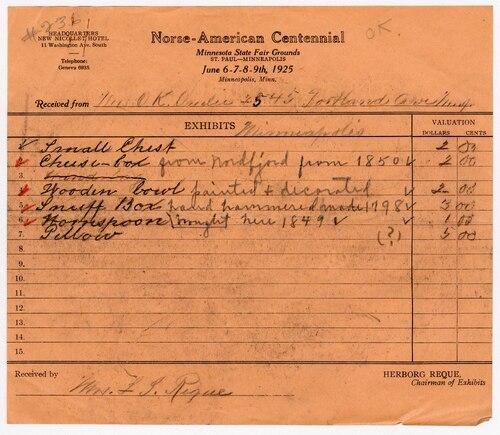 #2361
OK
HEADQUARTERS
NEW NICOLLET HOTEL
11 Washington Ave. South
Telephone:
Geneva 6835
Norse-American Centennial
Minnesota State Fair Grounds
ST. PAUL—MINNEAPOLIS
June 6-7-8-9th, 1925
Minneapolis, Minn.
Received from Mrs O.K. 2545 Portland Ave
EXHIBITS Minneapolis
VALUATION
DOLLARS CENTS
Small Chest 2 00
Cheese-box from Nordfjord from 1850 2 00
3.
Wooden bowl painted & decorated 2 00
Snuff Box hand hammered made 1798 3 00
Hornspoon brought here 1849 1 00
7. Pillow (?) 5 00
8.
9.
10.
11.
12.
13.
14.
15.
Received by Mrs. F J. Reque
HERBORG REQUE,
Chairman of Exhibits